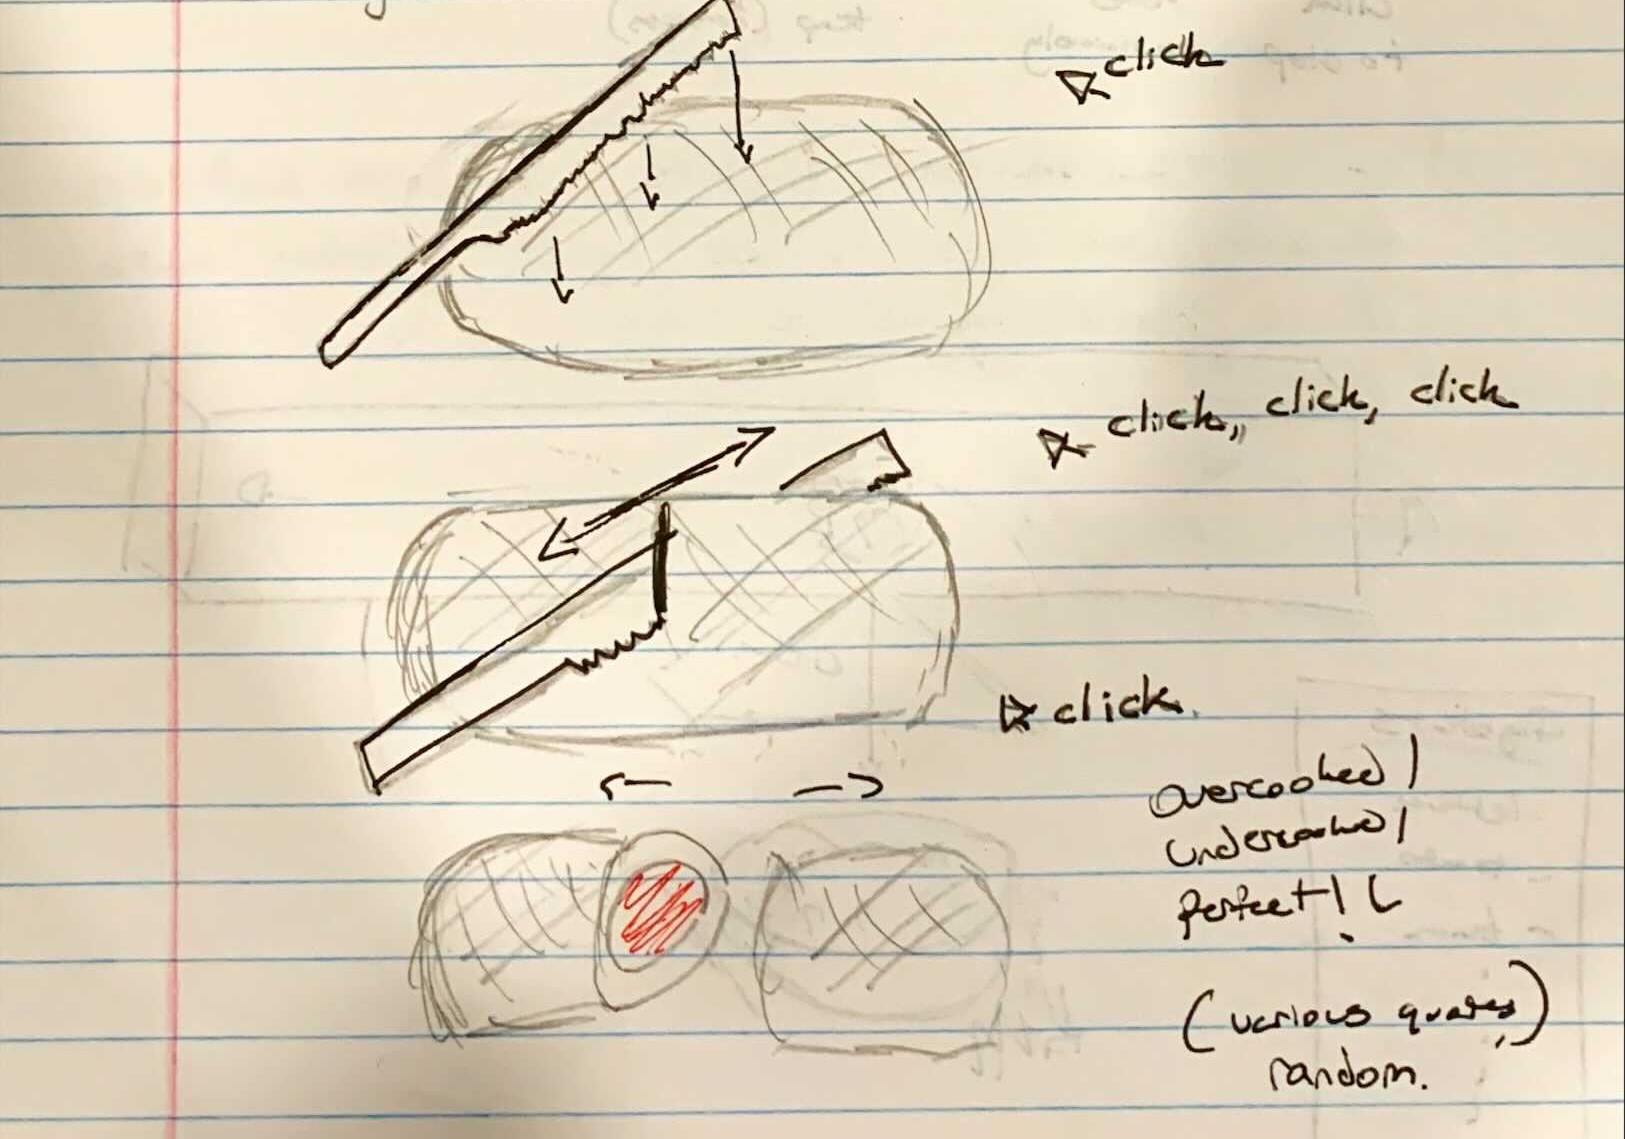 click
click, click, click
click
overcooked /
undercooked /
perfect! L
(various quotes,)
random.